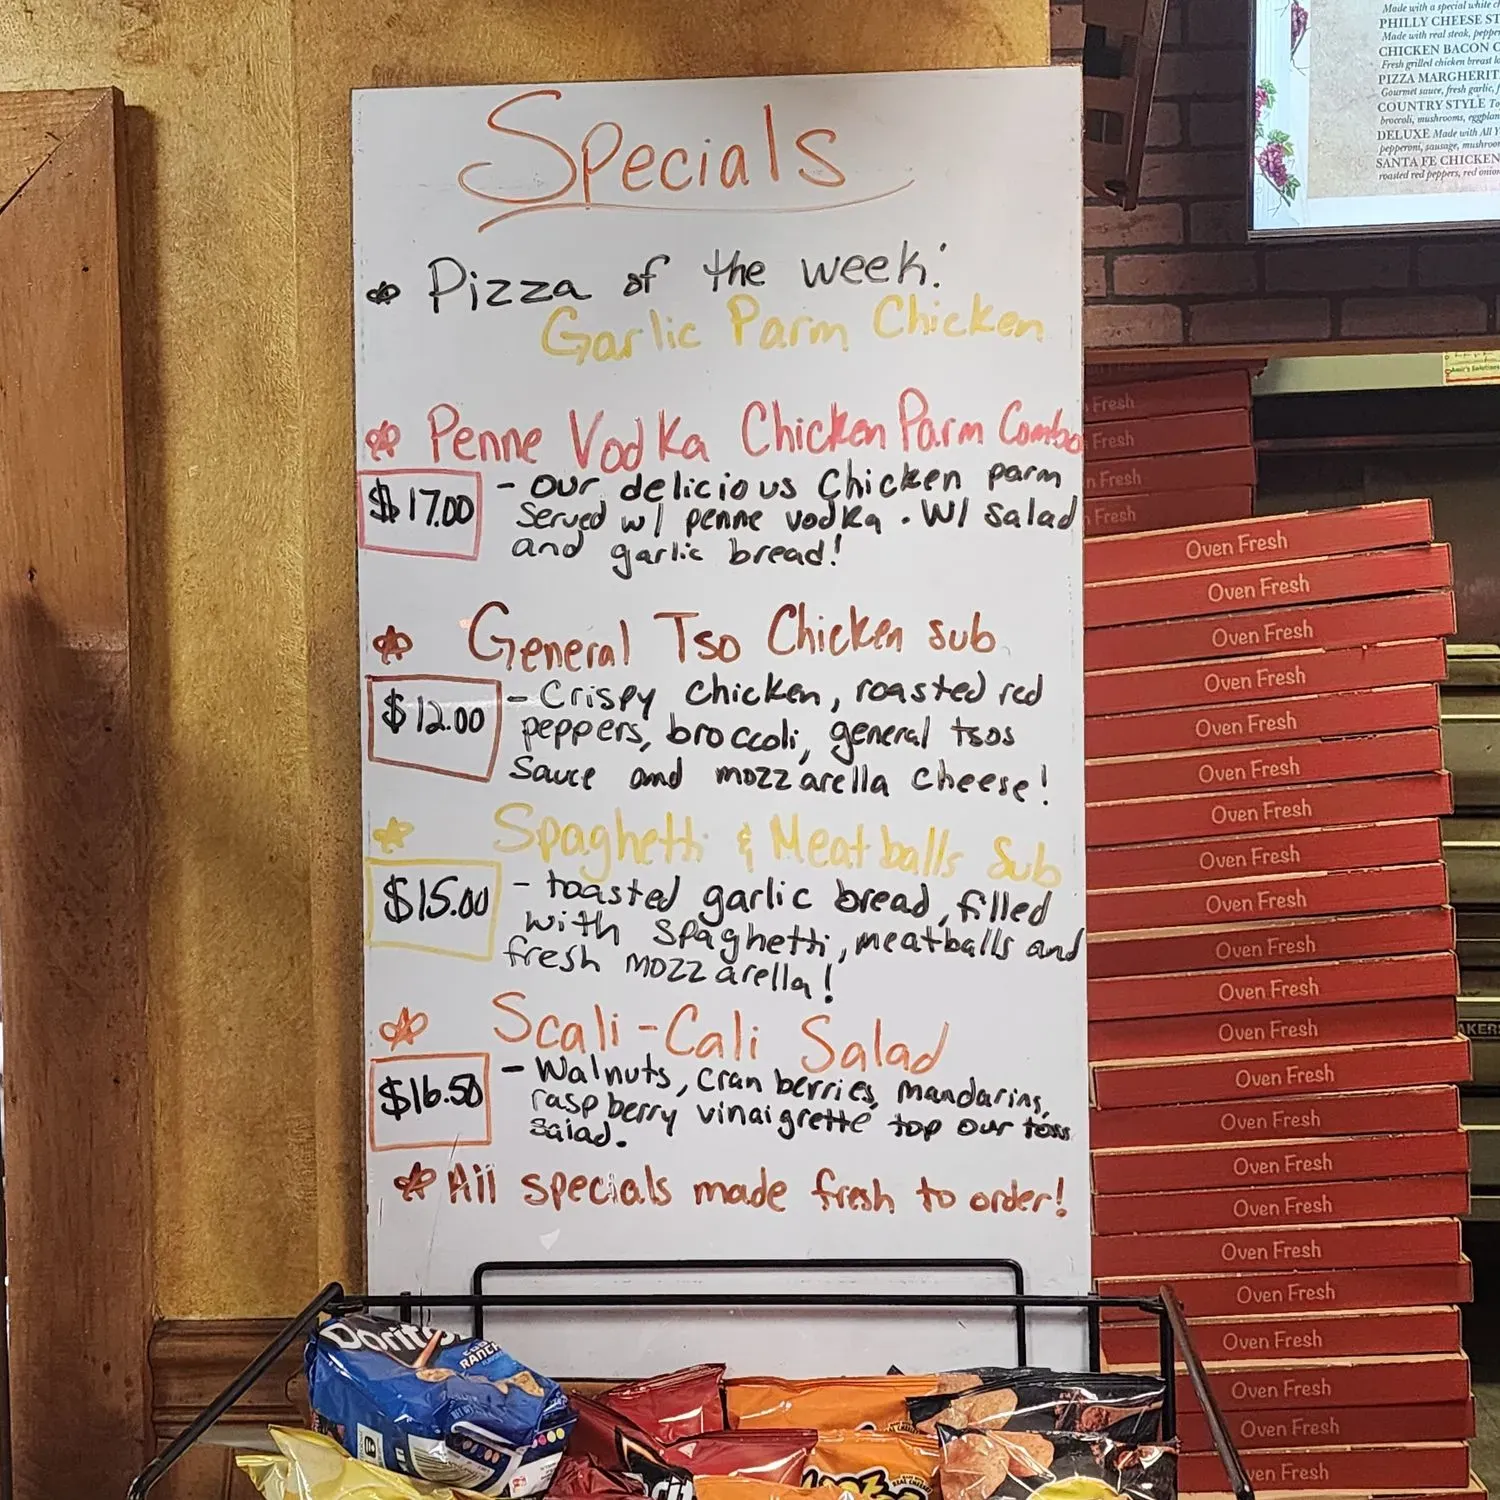 Specials
Pizza of the week:
Garlic Parm Chicken
Penne Vodka Chicken Parm Combo
$17.00
- our delicious Chicken parm
served w/ penne vodka. W/ salad
and garlic bread!
General Tso Chicken sub
$12.00
- Crispy chicken, roasted red
peppers, broccoli, general tsos
sauce and mozzarella cheese!
Spaghetti & Meatballs Sub
$15.00
- toasted garlic bread, filled
with spaghetti, meatballs and
fresh mozzarella!
Scali-Cali Salad
$16.50
- Walnuts, cranberries, mandarins,
raspberry vinaigrette top our toss
salad.
All specials made fresh to order!
Made with a special white
PHILLY CHEESE ST
Made with real steak, peppe
CHICKEN BACON
Fresh grilled chicken breast
PIZZA MARGHERIT
Gourmet sauce, fresh garlic,
COUNTRY STYLE
broccoli, mushrooms, eggplan
DELUXE Made with All
pepperoni, sausage, mushroo
SANTA FE CHICKEN
roasted red peppers, red onio
Fresh
Fresh
n Fresh
Fresh
Oven Fresh
Oven Fresh
Oven Fresh
Oven Fresh
Oven Fresh
Oven Fresh
Oven Fresh
Oven Fresh
Oven Fresh
Oven Fresh
Oven Fresh
Oven Fresh
Oven Fresh
Oven Fresh
Oven Fresh
Oven Fresh
Oven Fresh
Oven Fresh
Oven Fresh
Oven Fresh
Oven Fresh
ven Fresh
AKERS
Doritos
RANCH